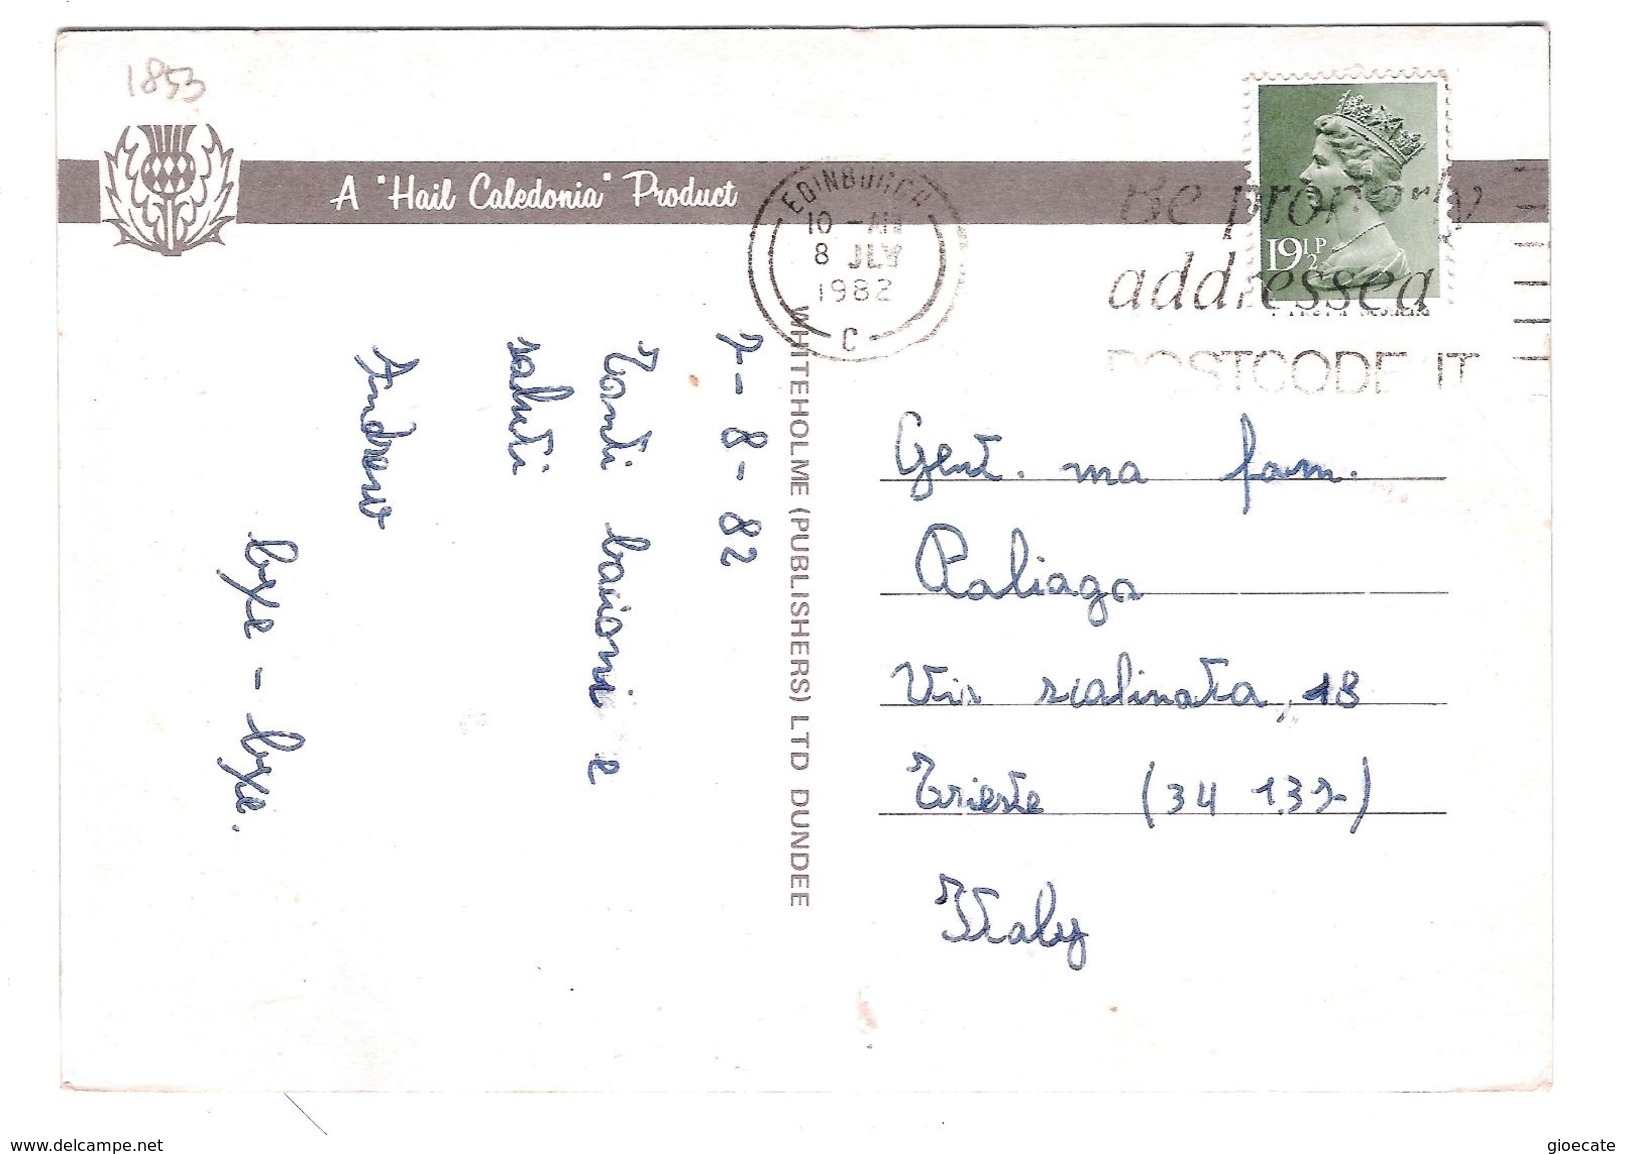 1853
A "Hail Caledonia" Product
EDINBURGH
10 - AM
8 JLY
1982
C
Be properly
addressed
POSTCODE IT
19½P
WHITEHOLME (PUBLISHERS) LTD DUNDEE
7-8-82
Tanti bacioni e
saluti
Andrew
bye - bye.
Gent. ma fam.
Raliaga
Via scalinata, 18
Trieste (34 137)
Italy
www.delcampe.net
gioecate